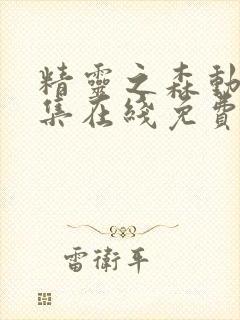 精靈之森動
集在綫免費
雷衛平